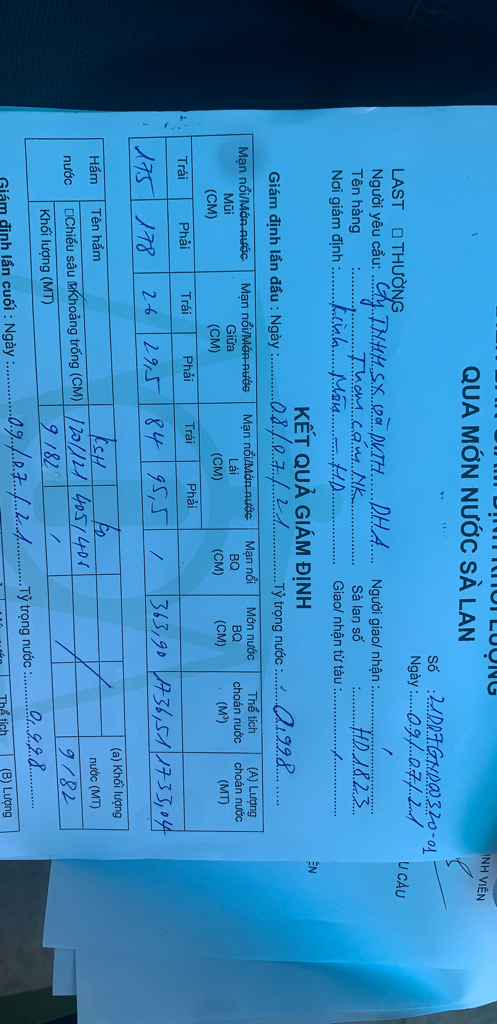 QUA MỚN NƯỚC SÀ LAN
Số :
Ngày : 09/07/21
LAST □ THƯỜNG
Người yêu cầu: Cty TNHH SX và DVTH DHA Người giao/ nhận :
Tên hàng : Than cám NK Sà lan số : HD1823
Nơi giám định : Kinh Môn – HD Giao/ nhận từ tàu :
KẾT QUẢ GIÁM ĐỊNH
Giám định lần đầu : Ngày : 08/07/21 Tỷ trọng nước : 0.998
Mạn nổi/Món nước Mũi (CM) Mạn nổi/Món nước Giữa (CM) Mạn nổi/Món nước Lái (CM) Mạn nổi BQ (CM) Món nước BQ (CM) Thể tích choán nước (M³) (A) Lượng choán nước (MT)
Trái Phải Trái Phải Trái Phải
175 178 26 29,5 84 95,5 / 363,90 1736,51 1733,04
Hầm nước Tên hầm KSH (a) Khối lượng nước (MT)
□Chiều sâu Khoảng trống (CM) 120/121 405/406
Khối lượng (MT) 9182 / 9182
Giám định lần cuối : Ngày : 09/07/21 Tỷ trọng nước : 0.998
Thể tích (B) Lượng